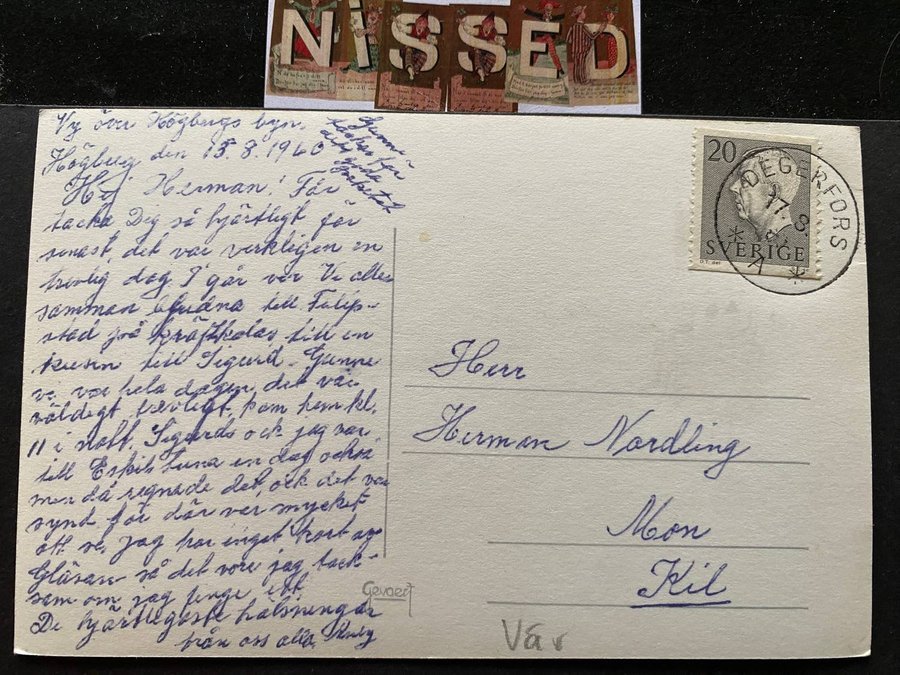 NISSED
Vy över Högbergs byn.
Högberg den 15.8.1960
Hej Herman! Får
tacka Dig så hjärtligt för
senast, det var verkligen en
trevlig dag I går var Vi alle-
samman bjudna till Filip-
stad på kräftkalas till en
kusin till Sigurd - Gunne
vi var hela dagen, det var
väldigt trevligt, kom hem kl.
11 i natt. Sigurds och jag var
till Eskilstuna en dag också
men då regnade det, och det var
synd för där var mycket
att se. jag har inget kort av
Gläsan så det vore jag tack-
sam om jag finge ett
De hjärtligaste hälsningar
från oss alla.
Gunni
tackar för
det goda
20
SVERIGE
DEGERFORS
17.8
Herr
Herman Nordling
Mon
Kil
Gevaert